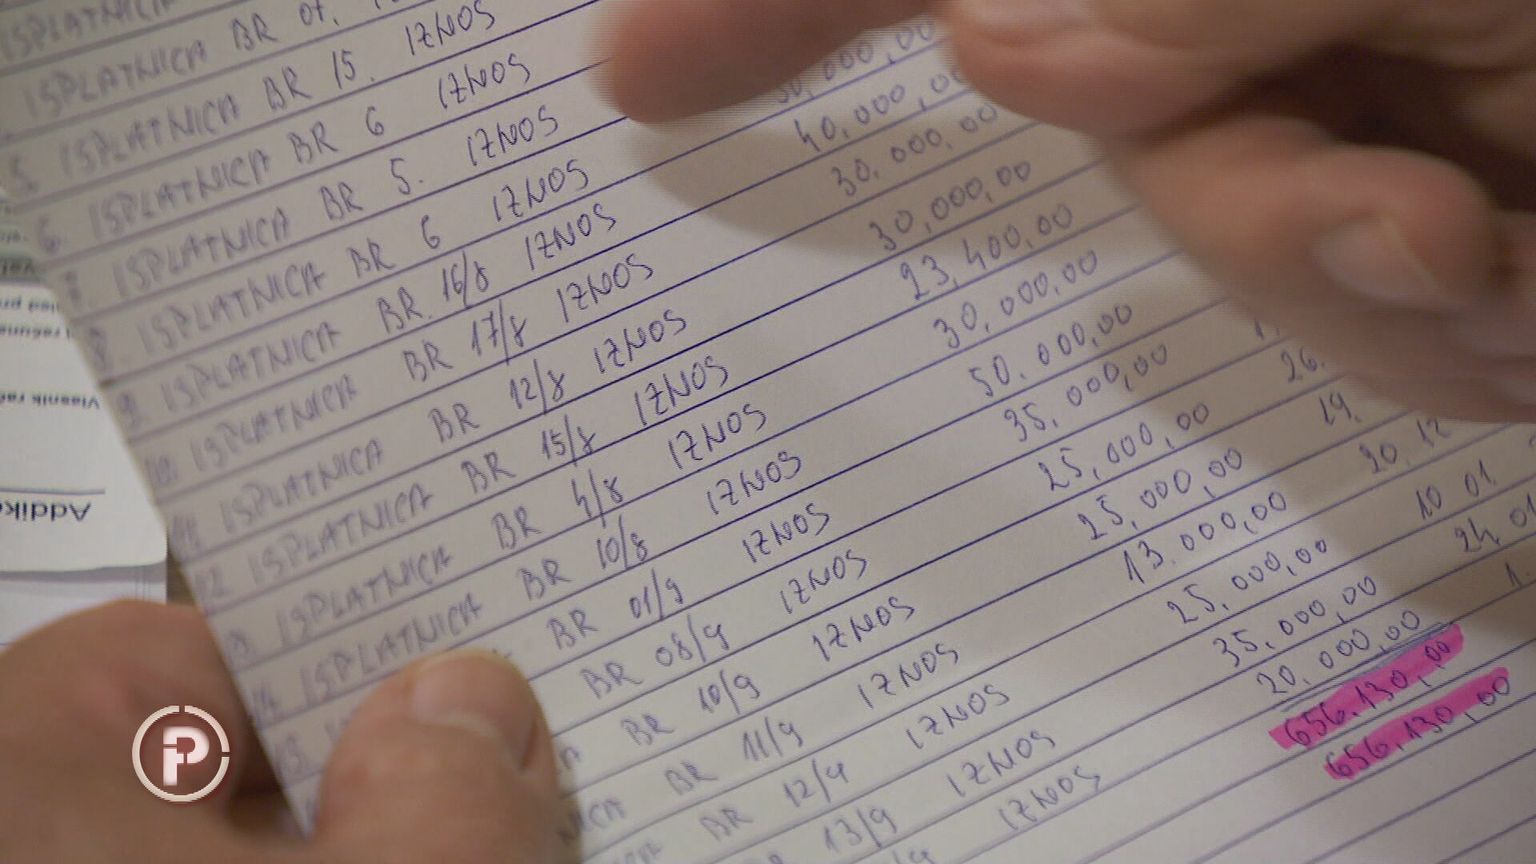 ISPLATNICA
ISPLATNICA BR 07.
ISPLATNICA BR 15. IZNOS
5 ISPLATNICA BR 6 IZNOS
6. ISPLATNICA BR 5. IZNOS
7. ISPLATNICA BR 6 IZNOS 30,000,00
8. ISPLATNICA BR. 16/8 IZNOS 40.000,00
9. ISPLATNICA BR 17/8 IZNOS 30.000.00
10. ISPLATNICA BR 12/8 IZNOS 30,000,00
11. ISPLATNICA BR 15/8 IZNOS 23,400.00
12. ISPLATNICA BR 4/8 IZNOS 30,000.00
13. ISPLATNICA BR 10/8 IZNOS 50.000,00
14. ISPLATNICA BR 01/9 IZNOS 35.000,00
BR 08/9 IZNOS 25,000,00 26.
BR 10/9 IZNOS 25,000,00 19.
BR 11/9 IZNOS 13.000,00 20.12
BR 12/9 IZNOS 25.000,00 10 01.
BR 13/9 IZNOS 35.000,00 24.01
IZNOS 20.000,00 1.
656.130,00
656.130,00
Vlasnik
Addik
IP